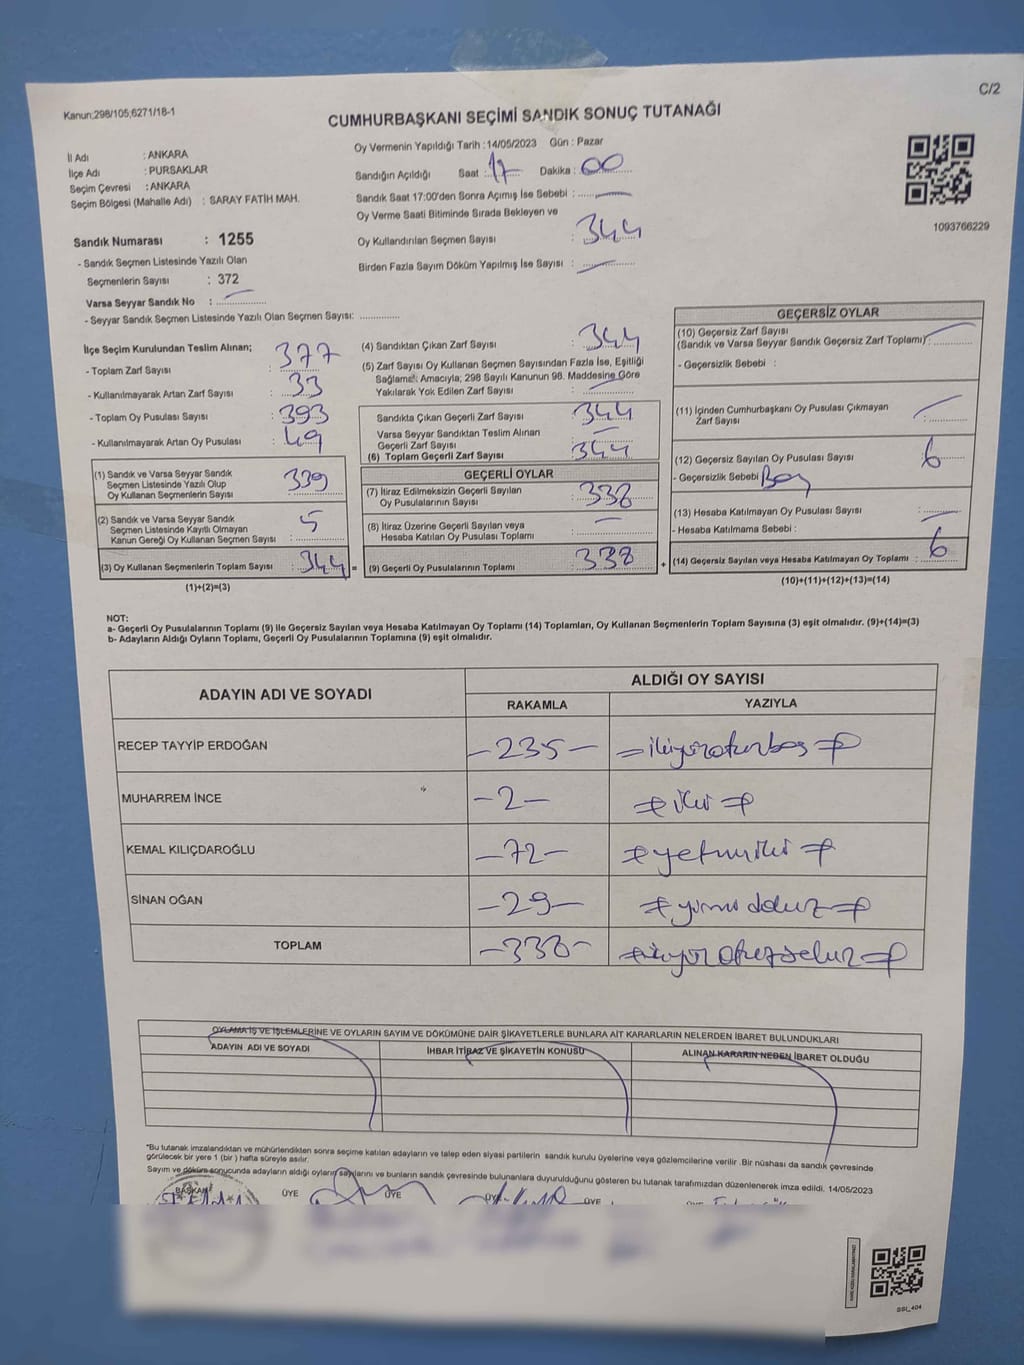 C/2
Kanun;298/105;6271/18-1
CUMHURBAŞKANI SEÇİMİ SANDIK SONUÇ TUTANAĞI
İl Adı : ANKARA
İlçe Adı : PURSAKLAR
Seçim Çevresi : ANKARA
Seçim Bölgesi (Mahalle Adı) : SARAY FATİH MAH.
Sandık Numarası : 1255
- Sandık Seçmen Listesinde Yazılı Olan
Seçmenlerin Sayısı : 372
Varsa Seyyar Sandık No :
- Seyyar Sandık Seçmen Listesinde Yazılı Olan Seçmen Sayısı:
Oy Vermenin Yapıldığı Tarih : 14/05/2023 Gün : Pazar
Sandığın Açıldığı Saat : 17 Dakika : 00
Sandık Saat 17:00'den Sonra Açımış İse Sebebi : —
Oy Verme Saati Bitiminde Sırada Bekleyen ve
Oy Kullandırılan Seçmen Sayısı : 344
Birden Fazla Sayım Döküm Yapılmış İse Sayısı : —
1093766229
İlçe Seçim Kurulundan Teslim Alınan;
- Toplam Zarf Sayısı : 377
- Kullanılmayarak Artan Zarf Sayısı : 33
- Toplam Oy Pusulası Sayısı : 393
- Kullanılmayarak Artan Oy Pusulası : 49
(1) Sandık ve Varsa Seyyar Sandık
Seçmen Listesinde Yazılı Olup
Oy Kullanan Seçmenlerin Sayısı : 339
(2) Sandık ve Varsa Seyyar Sandık
Seçmen Listesinde Kayıtlı Olmayan
Kanun Gereği Oy Kullanan Seçmen Sayısı : 5
(3) Oy Kullanan Seçmenlerin Toplam Sayısı : 344 =
(1)+(2)=(3)
(4) Sandıktan Çıkan Zarf Sayısı : 344
(5) Zarf Sayısı Oy Kullanan Seçmen Sayısından Fazla İse, Eşitliği
Sağlama Amacıyla; 298 Sayılı Kanunun 98. Maddesine Göre
Yakılarak Yok Edilen Zarf Sayısı : —
Sandıkta Çıkan Geçerli Zarf Sayısı : 344
Varsa Seyyar Sandıktan Teslim Alınan
Geçerli Zarf Sayısı : —
(6) Toplam Geçerli Zarf Sayısı : 344
GEÇERLİ OYLAR
(7) İtiraz Edilmeksizin Geçerli Sayılan
Oy Pusulalarının Sayısı : 338
(8) İtiraz Üzerine Geçerli Sayılan veya
Hesaba Katılan Oy Pusulası Toplamı : —
(9) Geçerli Oy Pusulalarının Toplamı : 338 +
GEÇERSİZ OYLAR
(10) Geçersiz Zarf Sayısı
(Sandık ve Varsa Seyyar Sandık Geçersiz Zarf Toplamı) :
- Geçersizlik Sebebi :
(11) İçinden Cumhurbaşkanı Oy Pusulası Çıkmayan
Zarf Sayısı :
(12) Geçersiz Sayılan Oy Pusulası Sayısı : 6
- Geçersizlik Sebebi Boş
(13) Hesaba Katılmayan Oy Pusulası Sayısı : —
- Hesaba Katılmama Sebebi :
(14) Geçersiz Sayılan veya Hesaba Katılmayan Oy Toplamı : 6
(10)+(11)+(12)+(13)=(14)
NOT:
a- Geçerli Oy Pusulalarının Toplamı (9) ile Geçersiz Sayılan veya Hesaba Katılmayan Oy Toplamı (14) Toplamları, Oy Kullanan Seçmenlerin Toplam Sayısına (3) eşit olmalıdır. (9)+(14)=(3)
b- Adayların Aldığı Oyların Toplamı, Geçerli Oy Pusulalarının Toplamına (9) eşit olmalıdır.
ADAYIN ADI VE SOYADI ALDIĞI OY SAYISI
RAKAMLA YAZIYLA
RECEP TAYYİP ERDOĞAN -235- ikiyüzotuzbeş
MUHARREM İNCE -2- iki
KEMAL KILIÇDAROĞLU -72- yetmişiki
SİNAN OĞAN -29- yirmidokuz
TOPLAM -338-
OYLAMA İŞ VE İŞLEMLERİNE VE OYLARIN SAYIM VE DÖKÜMÜNE DAİR ŞİKAYETLERLE BUNLARA AİT KARARLARIN NELERDEN İBARET BULUNDUKLARI
ADAYIN ADI VE SOYADI İHBAR İTİRAZ VE ŞİKAYETİN KONUSU ALINAN KARARIN NEDEN İBARET OLDUĞU
*Bu tutanak imzalandıktan ve mühürlendikten sonra seçime katılan adayların ve talep eden siyasi partilerin sandık kurulu üyelerine veya gözlemcilerine verilir .Bir nüshası da sandık çevresinde
görülecek bir yere 1 (bir ) hafta süreyle asılır.
Sayım ve döküm sonucunda adayların aldığı oyların sayılarını ve bunların sandık çevresinde bulunanlara duyurulduğunu gösteren bu tutanak tarafımızdan düzenlenerek imza edildi. 14/05/2023
BAŞKAN ÜYE ÜYE ÜYE ÜYE
SSİ_404